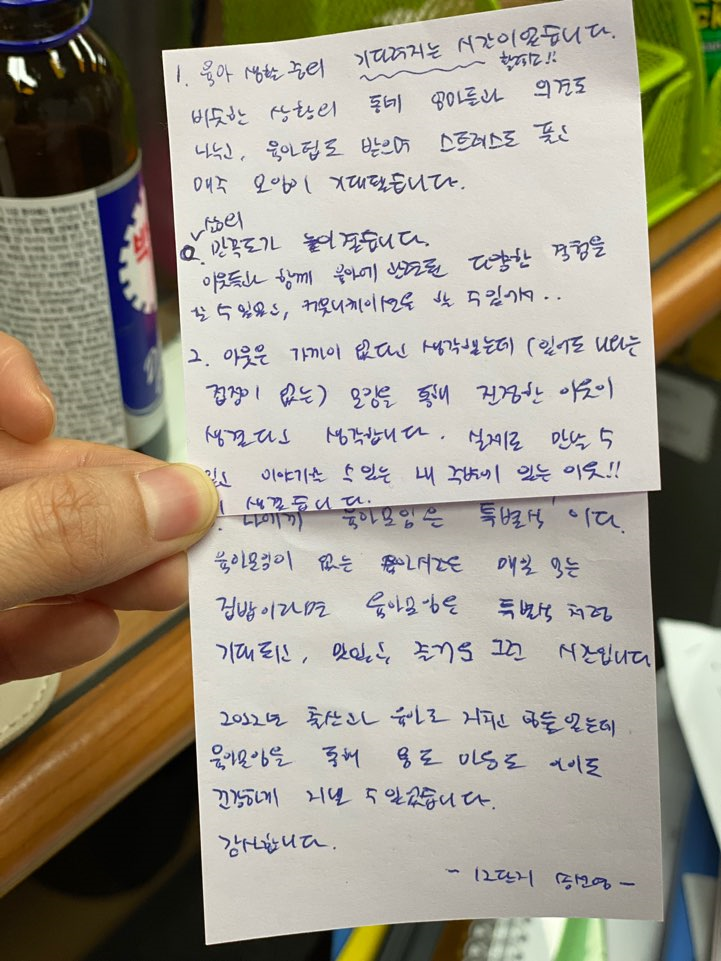 1. 육아 생활 중의 기다려지는 시간이었습니다.
힐링!!
비슷한 상황의 동네 엄마들과 의견도
나누고, 육아팁도 받으며 스트레스도 풀고
매주 모임이 기대됐습니다.
삶의
만족도가 높아졌습니다.
이웃들과 함께 육아에 관련된 다양한 경험을
할 수 있었고, 커뮤니케이션을 할 수 있어서..
2. 이웃은 가까이 없다고 생각했는데 (있어도 나와는
접점이 없는) 모임을 통해 진정한 이웃이
생겼다고 생각합니다. 실제로 만날 수
있고 이야기할 수 있는 내 주변에 있는 이웃!!
이 생겼습니다.
나에게 육아모임은 '특별식'이다.
육아모임이 없는 육아시간은 매일 먹는
집밥이라면 육아모임은 특별식처럼
기대되고, 맛있고, 즐거운 그런 시간입니다
2022년 출산과 육아로 지치고 힘들었는데
육아모임을 통해 몸도 마음도 아이도
건강하게 지낼 수 있었습니다.
감사합니다.
- 12단지